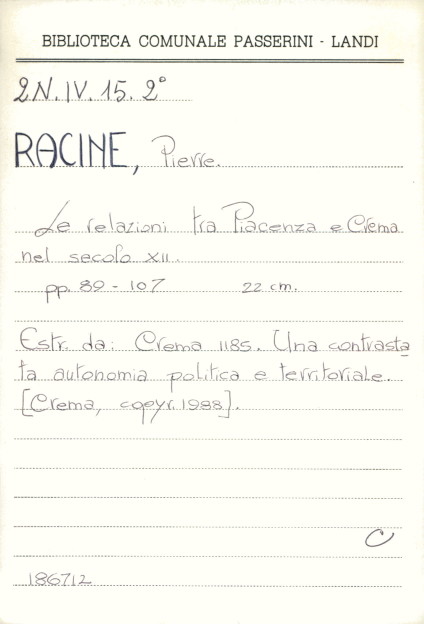 BIBLIOTECA COMUNALE PASSERINI - LANDI
2N.IV.15.2°
RACINE, Pierre.
Le relazioni tra Piacenza e Crema
nel secolo XII.
pp. 89 - 107 22 cm.
Estr. da: Crema 1185. Una contrasta
ta autonomia politica e territoriale.
[Crema, copyr. 1988].
C
186712